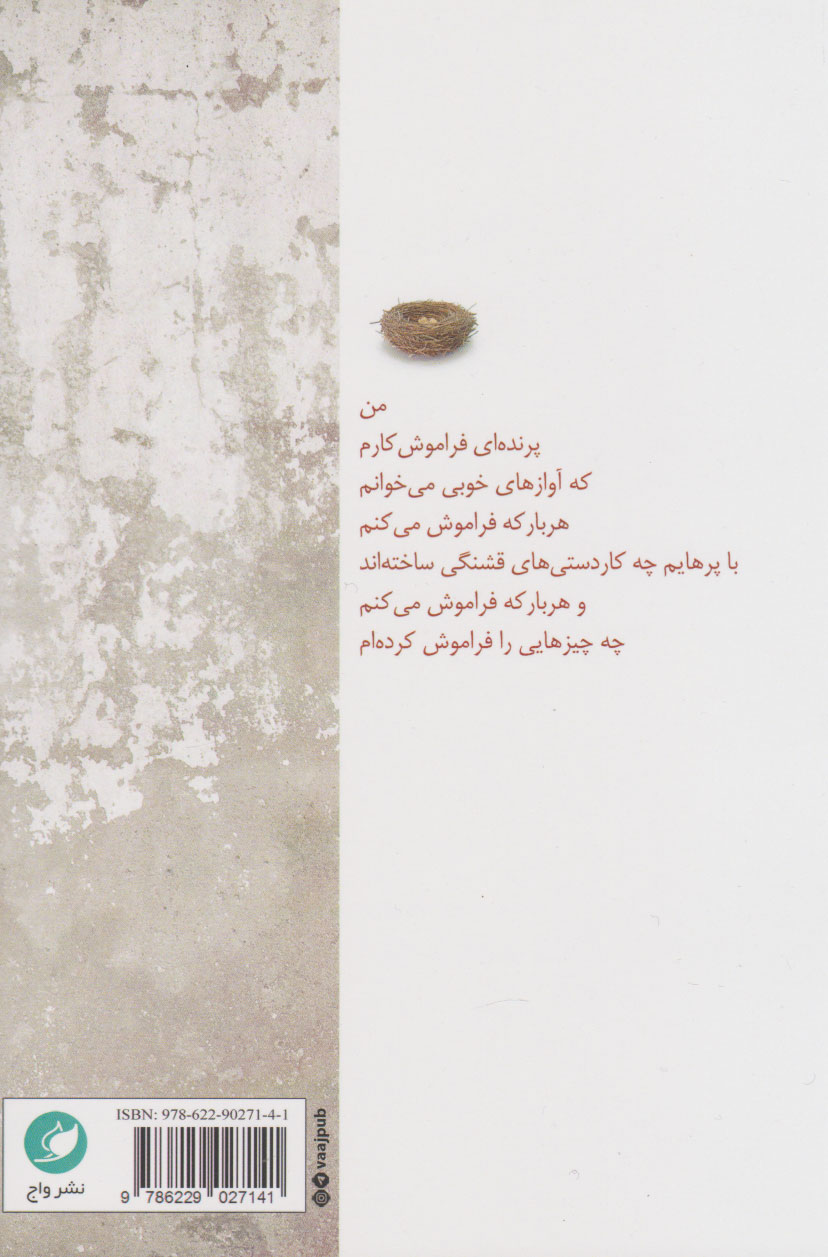 من
پرنده‌ای فراموش‌کارم
که آوازهای خوبی می‌خوانم
هربار که فراموش می‌کنم
با پرهایم چه کاردستی‌های قشنگی ساخته‌اند
و هربار که فراموش می‌کنم
چه چیزهایی را فراموش کرده‌ام
ISBN: 978-622-90271-4-1
9 786229 027141
نشر واج
vaajpub